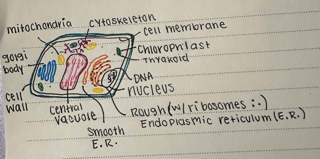 mitochondria
cytoskeleton
cell membrane
Chloroplast
Thylakoid
golgi
body
DNA
nucleus
cell
wall
central
vacuole
Rough (w/ribosomes :.)
Endoplasmic reticulum (E.R.)
Smooth
E.R.